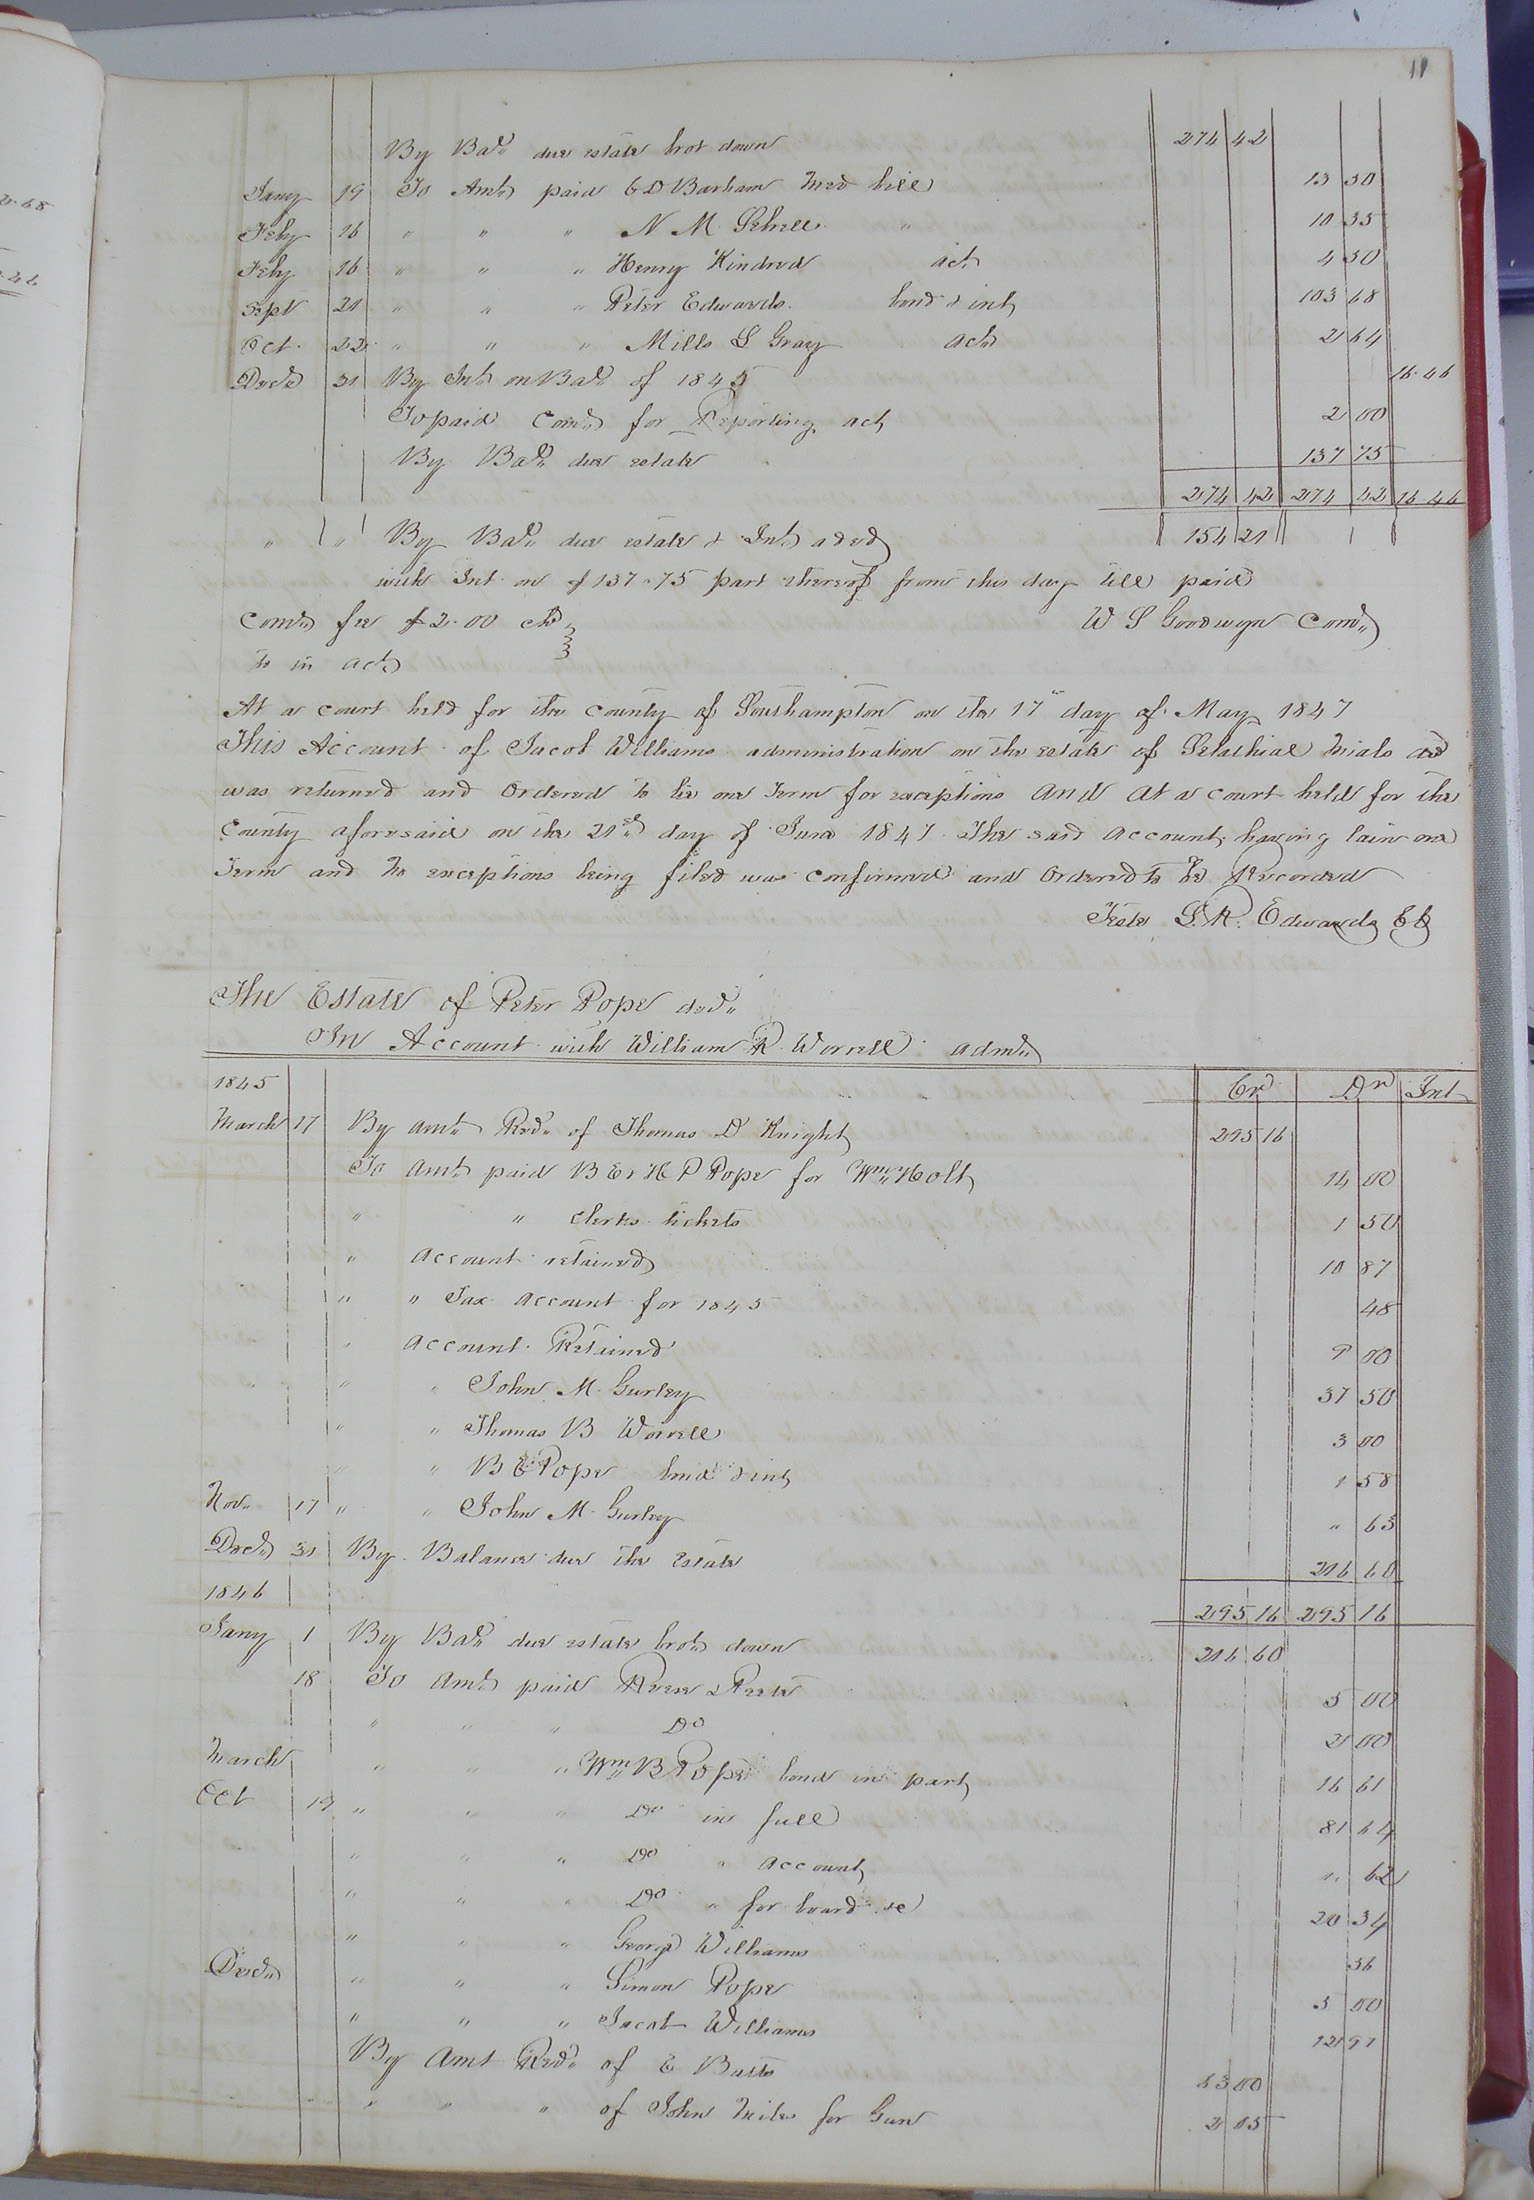 11
By Bal. due estate brot down 274 42
Jany 19 To Amt paid C D Barham Med bill 13 50
Feby 16 " " " N M Sebrell " 10 35
Feby 16 " " " Henry Kindred act 4 50
Sept 21 " " " Peter Edwards bond & int 103 68
Oct. 22 " " " Mills S Gray act 2 64
Decr 31 By Int on Bal. of 1845 16.46
To paid Comr for Reporting act 2 00
By Bal. due estate 137 75
274 42 274 42 16.46
" " By Bal. due estate & Int aded 154 21
with Int on $137.75 part thereof from this day till paid
Comr fee $2.00 chd W S Goodwyn Comr
to in act
At a court held for the County of Southampton on the 17th day of May 1847
This Account of Jacob Williams administration on the estate of Selathial Mials decd
was returned and Ordered to lie one Term for exceptions And At a court held for the
County aforesaid on the 21st day of June 1847 The said Account having lain one
Term and no exceptions being filed was confirmed and Ordered to be Recorded
Teste L. R. Edwards CC
The Estate of Peter Pope decd
In Account with William R Worrell admr
1845 Cr Dr Int
March 17 By amt Recd of Thomas D Knight 295 16
To Amt paid B E & H P Pope for Wm Holt 14 00
" " Clerks tickets 1 50
" Account retained 10 87
" " Tax Account for 1845 48
" Account Retained 9 00
" " John M. Gurley 37 50
" " Thomas B Worrell 3 00
" " B E Pope bond & int 1 58
Nov. 17 " " John M. Gurley " 63
Decr 31 By Balance due the Estate 216 60
1846 295 16 295 16
Jany 1 By Bal. due estate brot down 216 60
18 To Amt paid Reese & Reese 5 00
" " " Do 2 00
March " " " Wm B Pope bond in part 16 61
Oct 19 " " " Do in full 81 64
" " " Do " Account " 62
" " " Do " for board &c 20 34
" " " George Williams 36
Decr " " " Simon Pope 5 00
" " " Jacob Williams 12 91
By Amt Recd of E Butts 63 00
" " " of John for Gun 2 05
2.68
.46